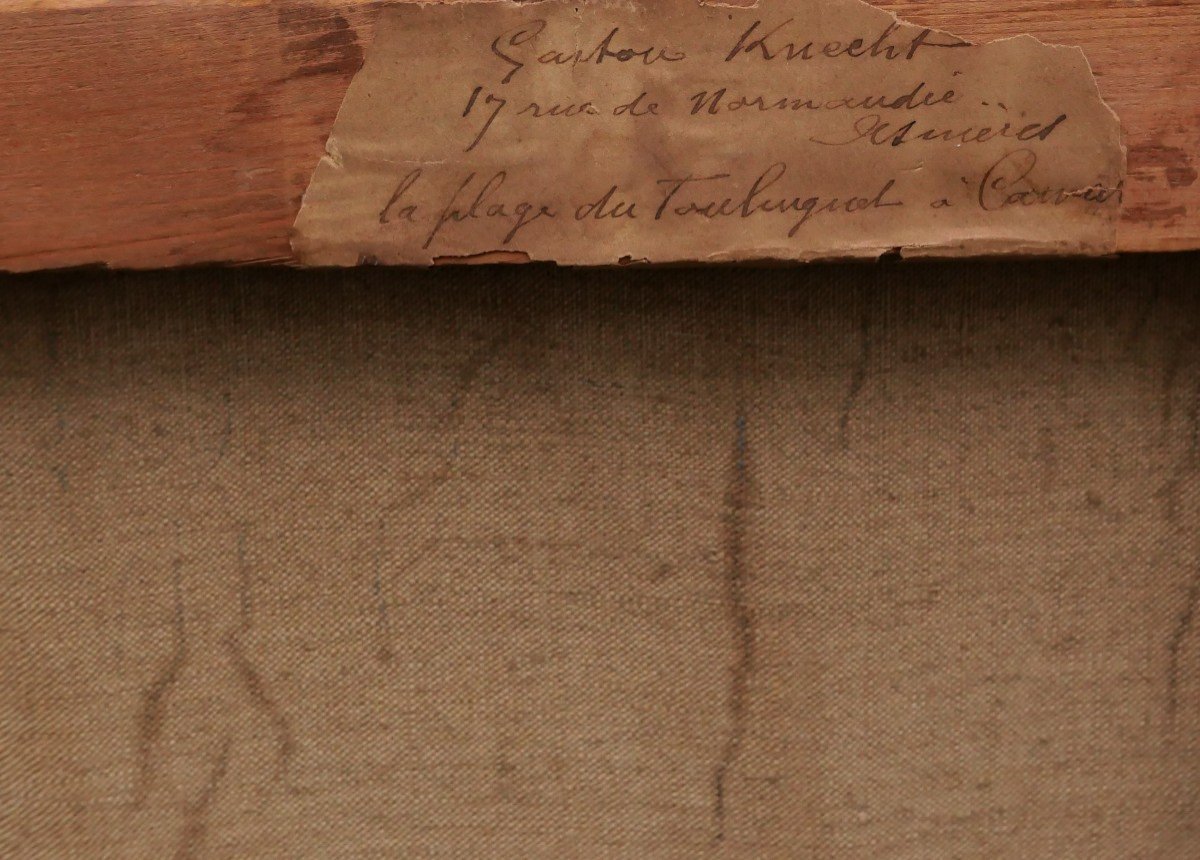 Gaston Knecht
17 rue de Normandie..
Asnières
la plage du Toulinguet à